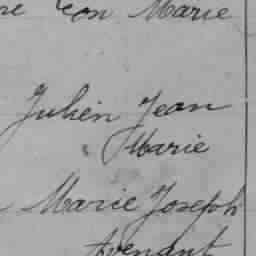 Léon Marie
Julien Jean
Marie
Marie Joseph
Avenant